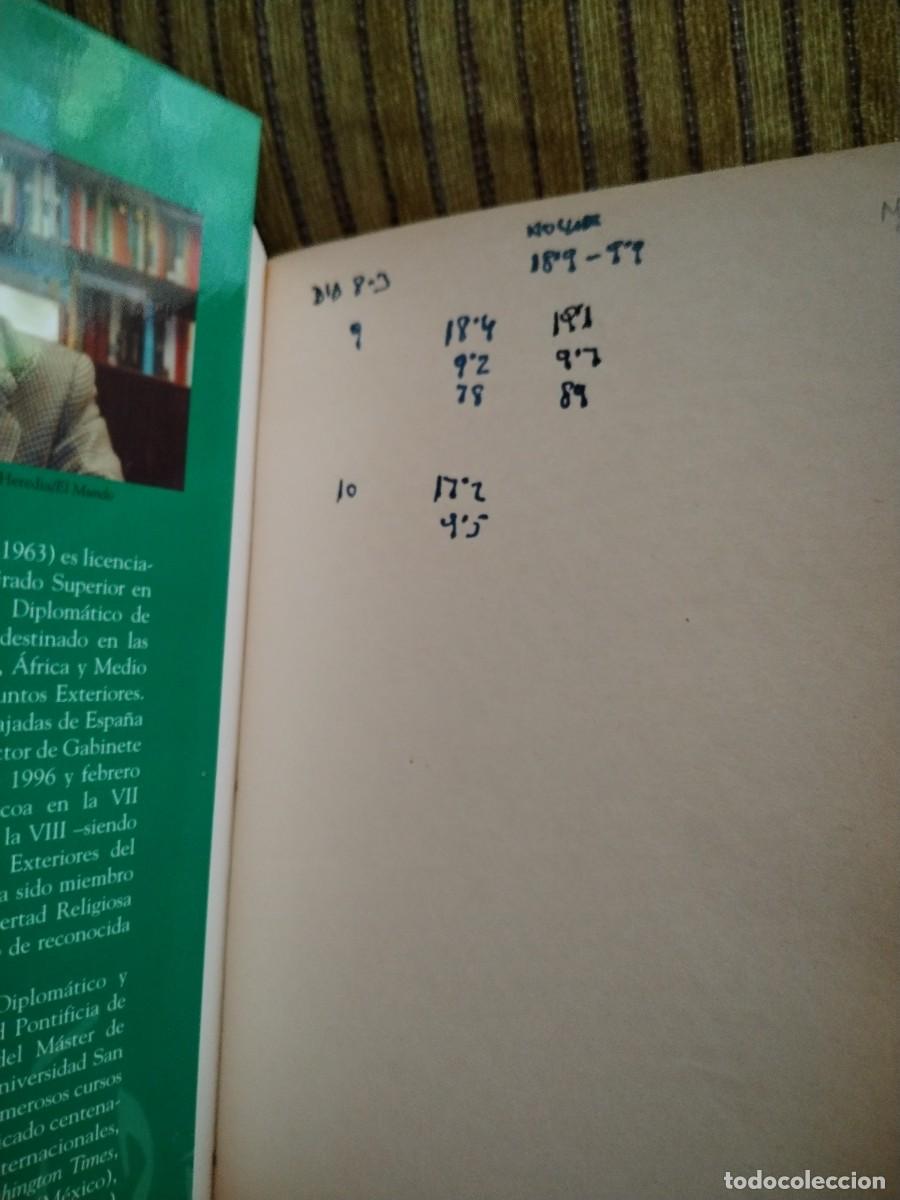 Heredia/El Mundo
1963) es licencia-
Grado Superior en
Diplomático de
destinado en las
, África y Medio
untos Exteriores.
ajadas de España
ctor de Gabinete
1996 y febrero
coa en la VII
la VIII –siendo
Exteriores del
a sido miembro
ertad Religiosa
de reconocida
Diplomático y
d Pontificia de
del Máster de
niversidad San
merosos cursos
icado centena-
nternacionales,
hington Times,
(México),
DIA 8·3
9 18'4 19'1
9'2 9'7
78 89
10 17'2
9'5
todocoleccion